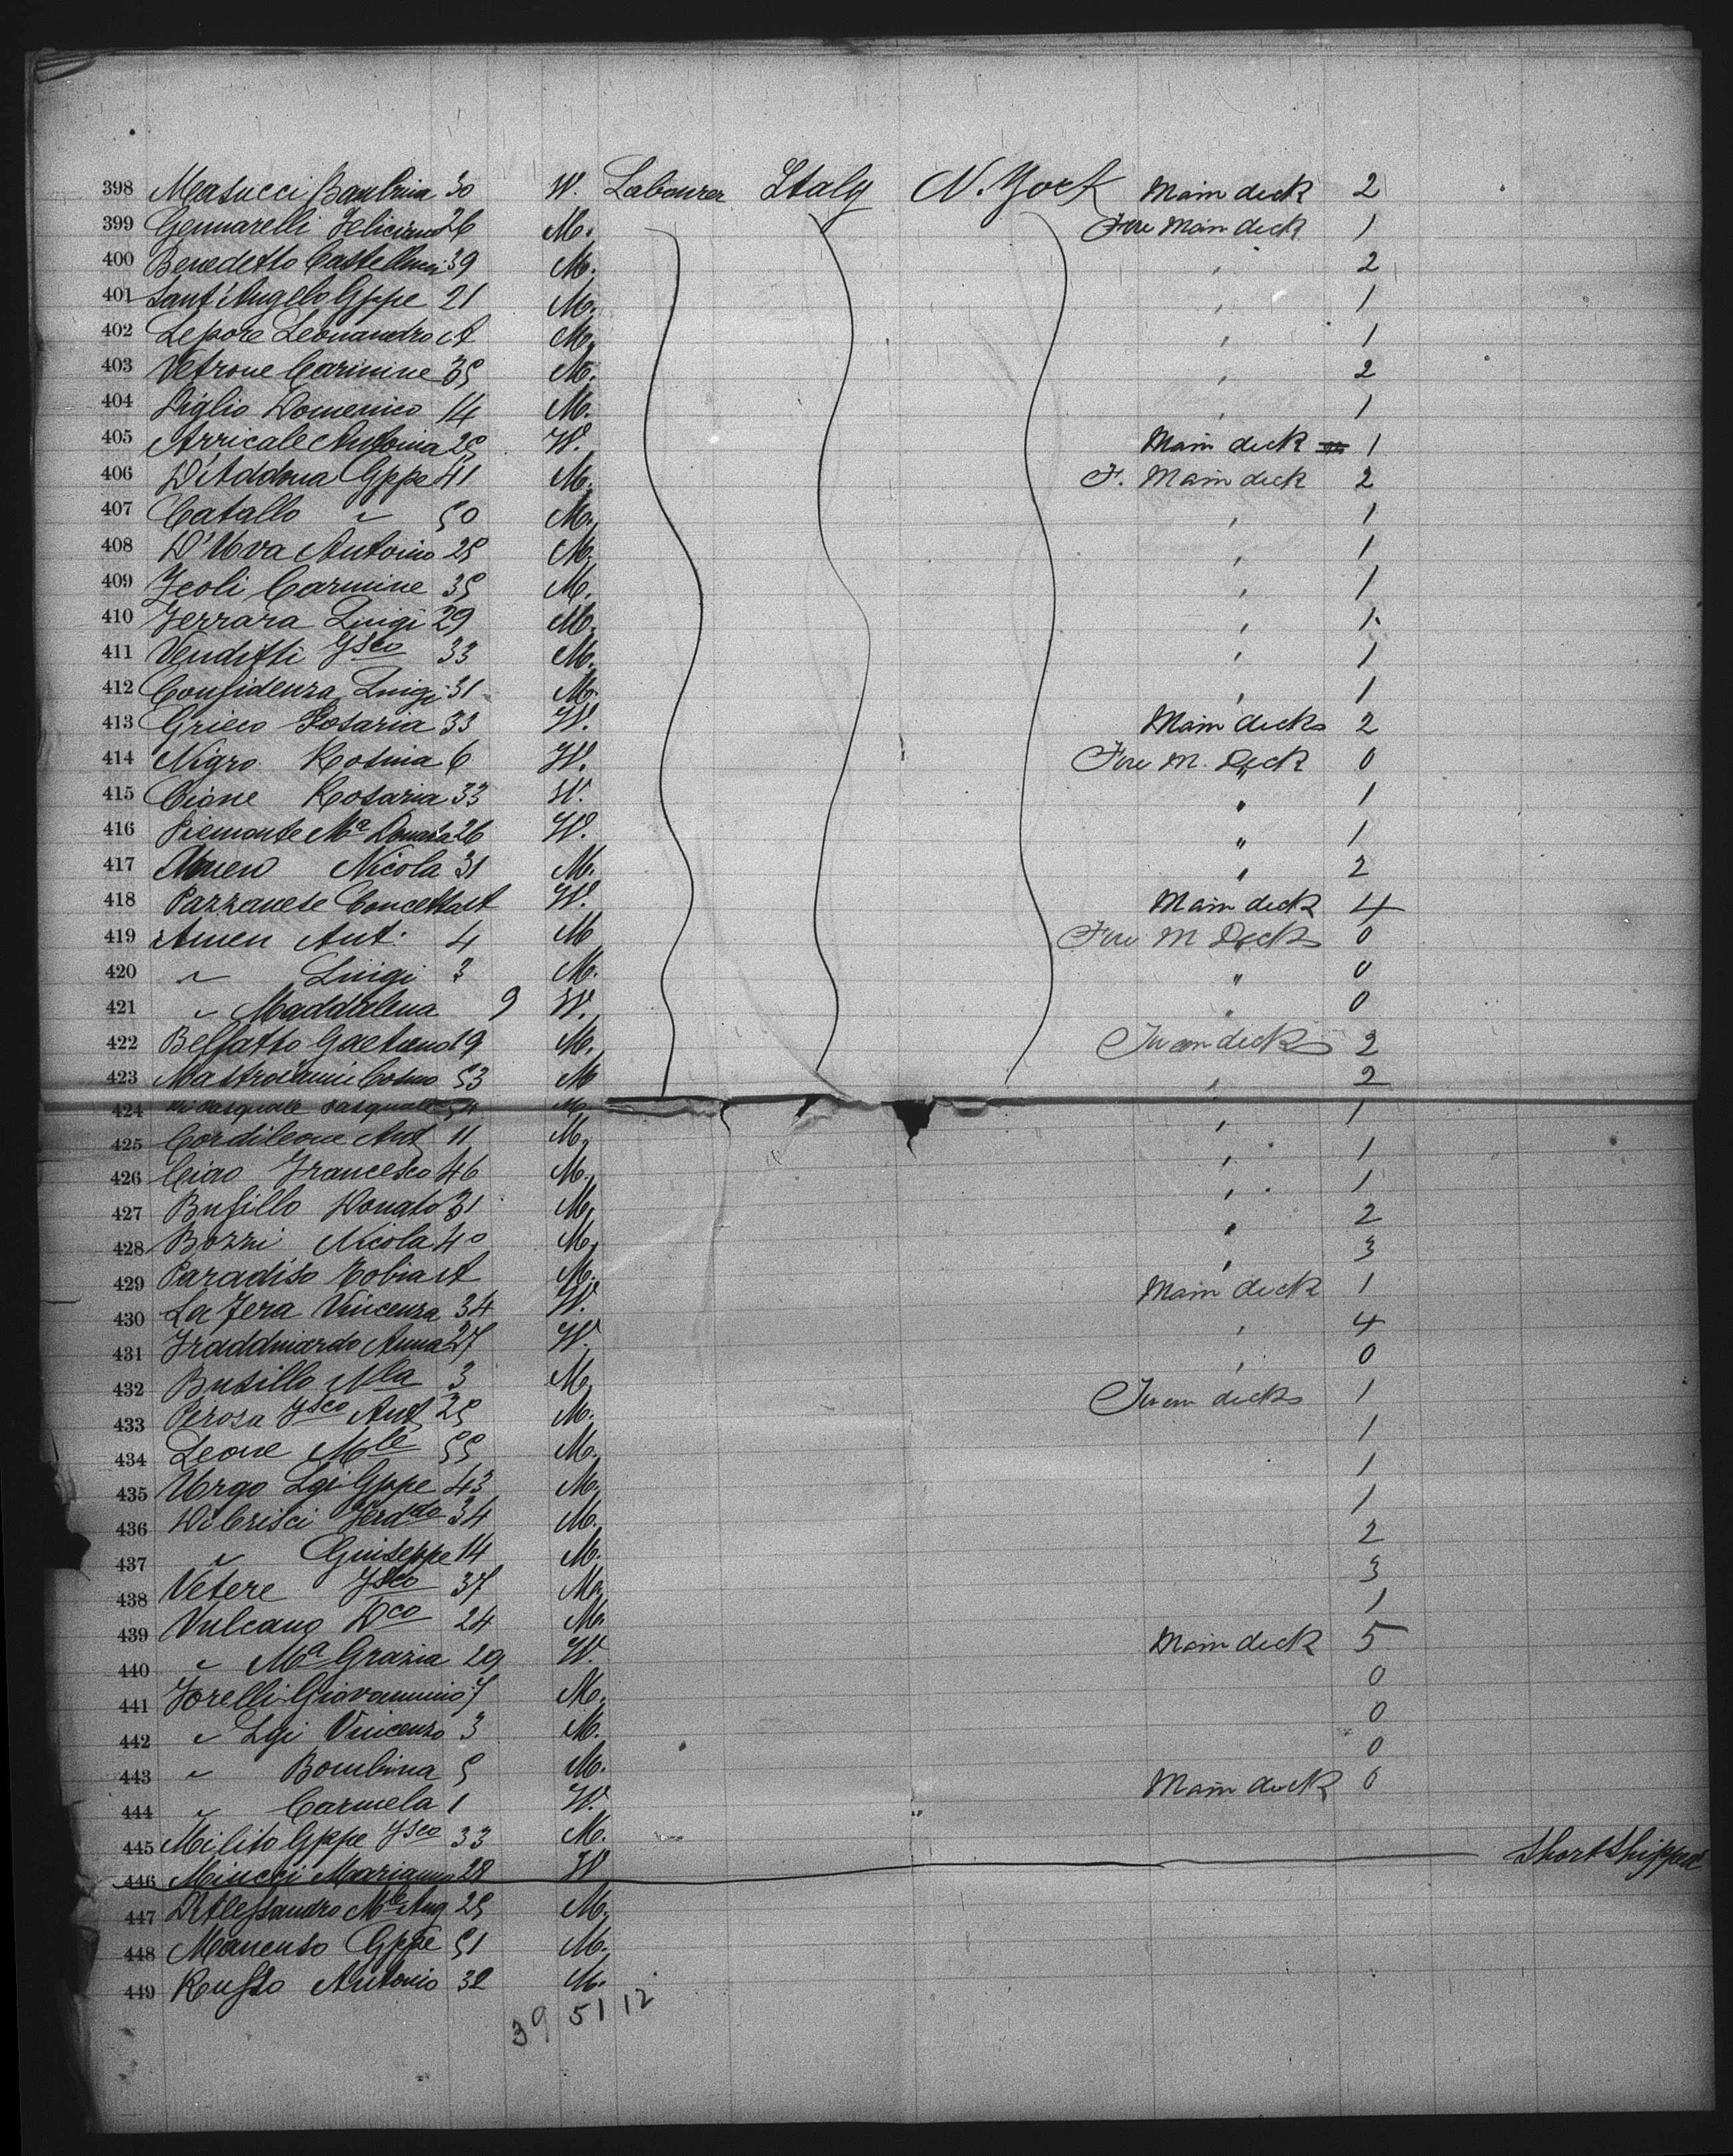 398 Masucci Bambina 30 W. Labourer Italy N. York Main deck 2
399 Gennarelli Feliciano 26 M. Fore Main deck 1
400 Benedetto Castellucci 39 M. " 2
401 Sant'Angelo Gppe 21 M. " 1
402 Lepore Leonandro A M. " 1
403 Vetrone Carmine 35 M. " 2
404 Piglio Domenico 14 M. " 1
405 Arricale Antonia 25 W. Main deck 1
406 D'Addona Gppe 41 M. F. Main deck 2
407 Catallo " 50 M. " 1
408 D'Uva Antonio 25 M. " 1
409 Feoli Carmine 35 M. " 1
410 Ferrara Luigi 29 M. " 1
411 Venditti Fsco 33 M. " 1
412 Confidenza Luigi 31 M. " 1
413 Grieco Rosaria 33 W. Main deck 2
414 Nigro Rosina 6 W. Fore M. Deck 0
415 Cione Rosaria 33 W. " 1
416 Piemonte Ma Donata 26 W. " 1
417 Amen Nicola 31 M. " 2
418 Pazzanese Concetta A W. Main deck 4
419 Amen Ant. 4 M Fore M Deck 0
420 " Luigi 3 M. " 0
421 " Maddalena 9 W. " 0
422 Belfatto Gaetano 19 M. deck 2
423 Cosmo 53 M " 2
424 Di Pasquale Pasquale 54 M. " 1
425 Cordileone Ant 11 M. " 1
426 Ciao Francesco 46 M. " 1
427 Busillo Donato 31 M. " 2
428 Bozzi Nicola 40 M. " 3
429 Paradiso Tobia A M. Main deck 1
430 La Fera Vincenza 34 W. " 4
431 Anna 27 W. " 0
432 Busillo Nla 3 M. deck 1
433 Perosa Fsco Ant 25 M. 1
434 Leone Mle 55 M. 1
435 Urgo Lgi Gppe 43 M. 1
436 Di Crisci Ferddo 34 M. 2
437 " Giuseppe 14 M. 3
438 Vetere Fsco 37 M. 1
439 Vulcano Dco 24 M.
440 " Ma Grazia 29 W. Main deck 5
441 Forelli Giovannino 7 M. 0
442 " Lgi Vincenzo 3 M. 0
443 " Bombina 5 M. 0
444 " Carmela 1 W. Main deck 0
445 Milito Gppe Fsco 33 M.
446 Mincci Marianna 28 W Short Shipped
447 D'Alessandro Mle Ang 25 M.
448 Mancuso Gppe 51 M.
449 Russo Antonio 32 M.
39 51 12